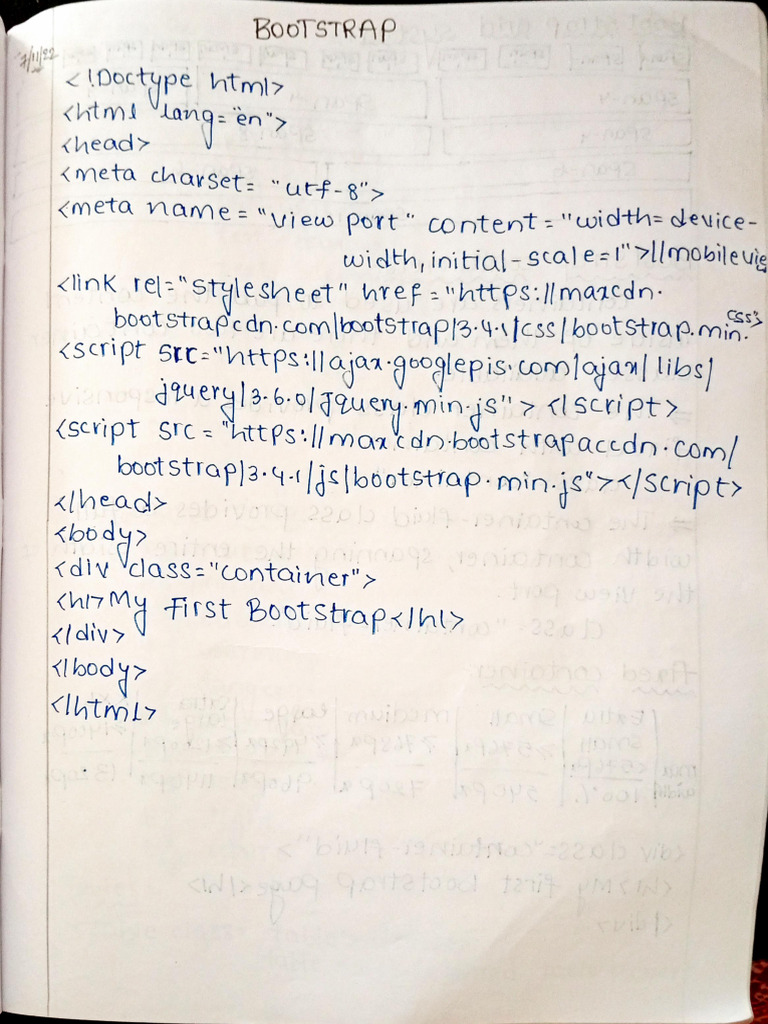 BOOTSTRAP
7/11/22
<!Doctype html>
<html lang="en">
<head>
<meta charset= "utf-8">
<meta name="view port" content="width=device-
width,initial-scale=1">//mobilevie
<link rel="stylesheet" href="https://maxcdn.
bootstrapcdn.com/bootstrap/3.4.1/css/bootstrap.min.css">
<script src="https://ajax.googlepis.com/ajax/libs/
jquery/3.6.0/jquery.min.js"></script>
<script src="https://maxcdn.bootstrapaccdn.com/
bootstrap/3.4.1/js/bootstrap.min.js"></script>
</head>
<body>
<div class="container">
<h1>My First Bootstrap</h1>
</div>
</body>
</html>